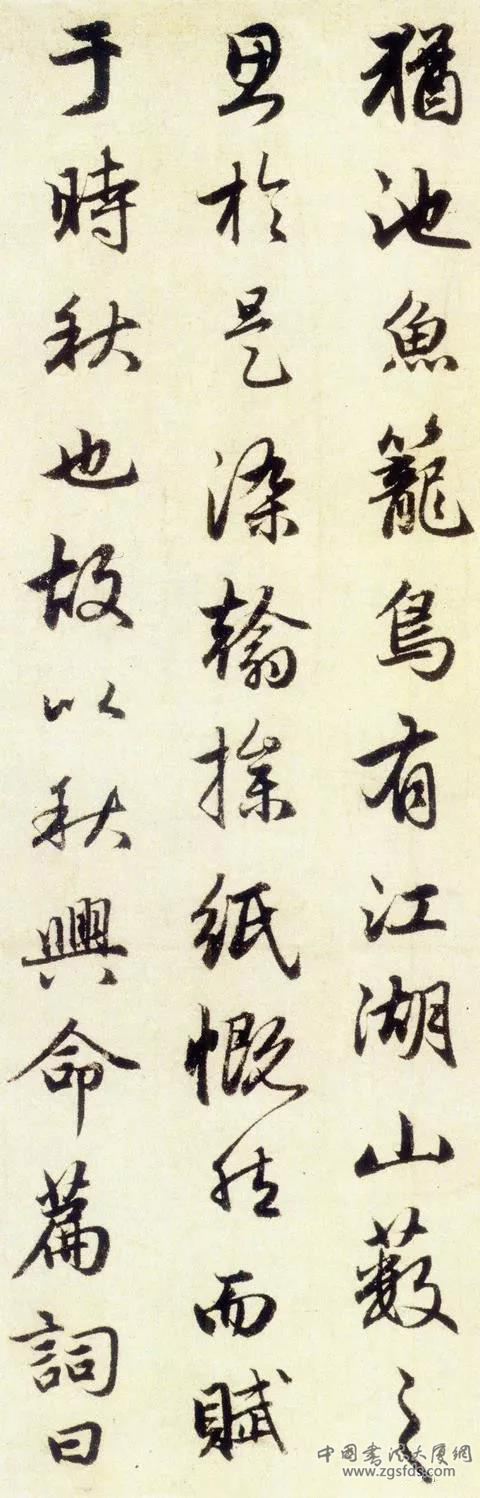 猶池魚籠鳥有江湖山藪之
思於是染翰操紙慨然而賦
于時秋也故以秋興命篇詞曰
中国书法大厦網
www.zgsfds.com